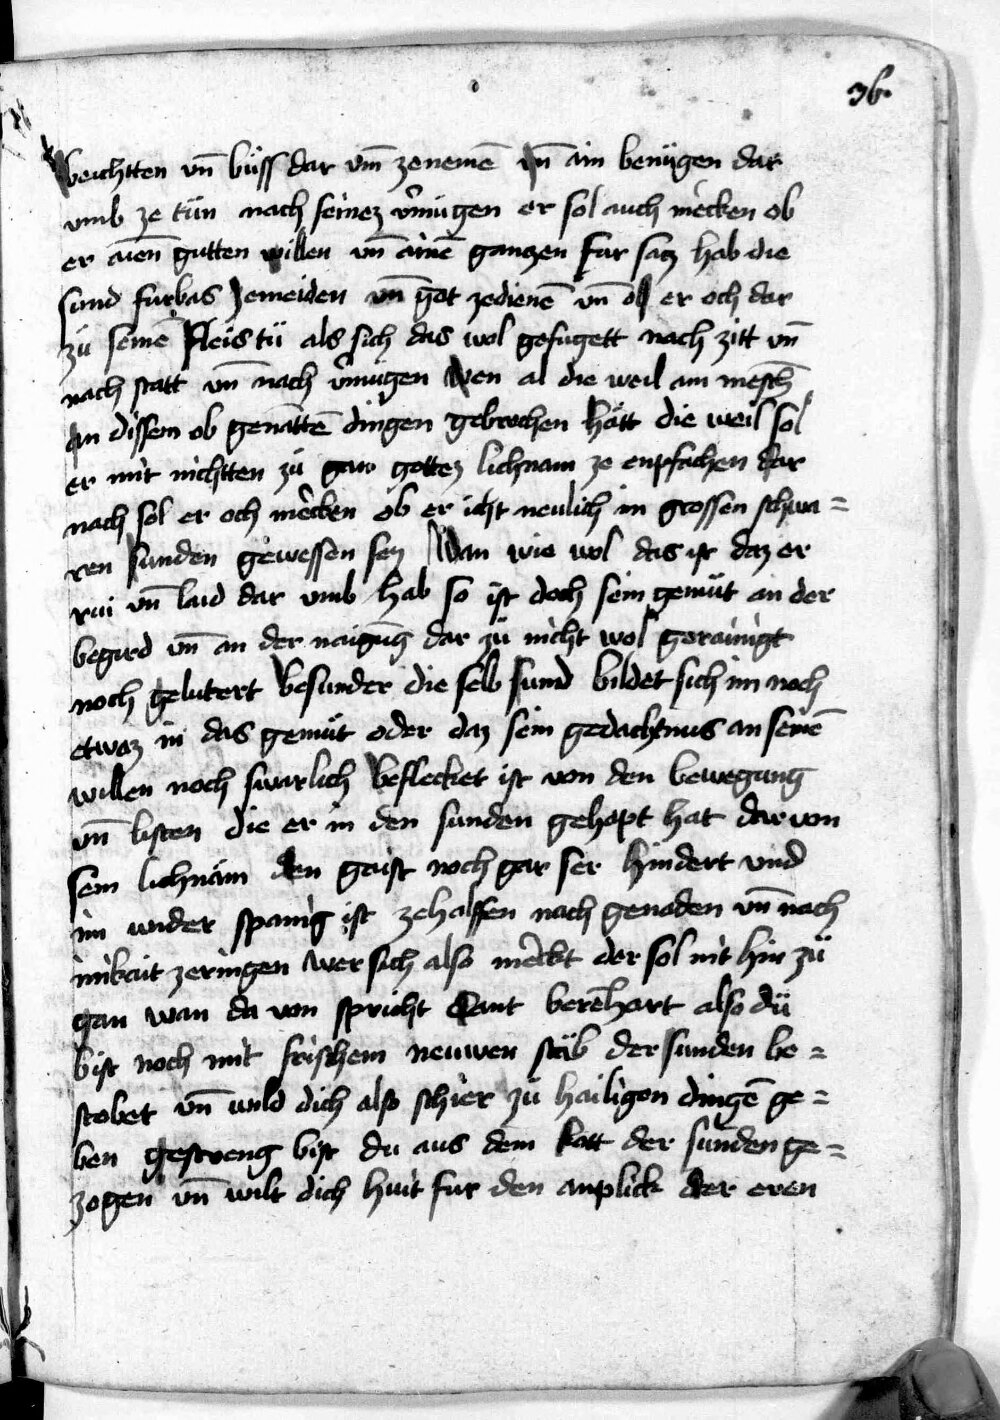 36.
beichtten vn̄ bůss dar vm̄ zenemē vn̄ ain benügen dar
vmb ze tün nach seinez v̄mügen er sol auch mercken ob
er aien̄ gutten willen vn̄ ainē ganzen fur satz hab die
sund furbas zemeiden vn̄ got zedienē vn̄ ob er och dar
zü seinē fleis tü als sich das wol gefugett nach zitt vn̄
nach statt vn̄ nach v̄mügen Wen al die weil ain mēsch
an dissem ob genāttē dingen gebrochen hätt die weil sol
er mit nichtten zü gan gottez lichnam ze enpfachen dar
nach sol er och mercken ob er icht neulich in grossen schwa=
ren sunden gewessen sey Wan wie wol das ist daz er
rui vn̄ laid dar vmb hab so ist doch sein gemüt an der
begird vn̄ an der naigūg dar zü nicht wol gerainigt
noch gelutert besunder die selb sund bildet sich im noch
etwaz in das gemüt oder daz sein gedachtnus an seinē
willen noch swarlich beflecket ist von den bewegung
vn̄ listen die er in den sunden gehopt hat dar von
sein lichnäm den gaist noch gar ser hindert vnd
im wider spanig ist zehalffen nach genaden vn̄ nach
inikait zeringen Wer sich also merckt der sol nit hin zü
gan wan da von spricht Sant berēhart also dü
bist noch mit frischem neuwen stäb der sunden be=
stobet vn̄ wild dich also schier zü hailigen dingē ge=
ben gestreng bist du aus dem kott der sunden ge=
zogen vn̄ wilt dich huit fur den anplick der eren